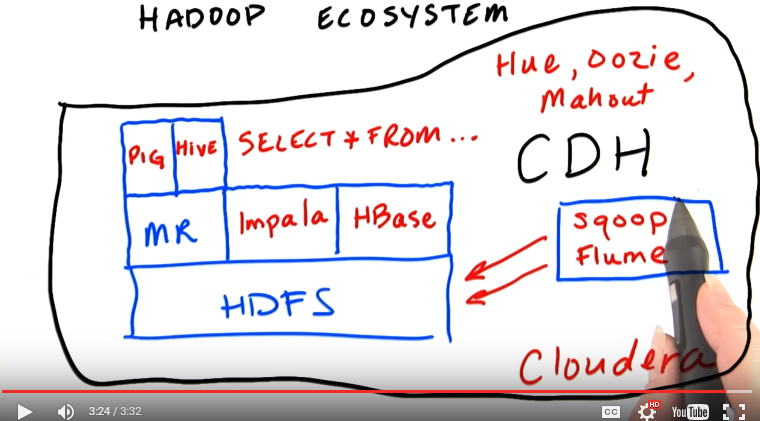 HADOOP ECOSYSTEM
Hue, Oozie,
Mahout
PIG HIVE SELECT * FROM...
CDH
MR Impala HBase
Sqoop
Flume
HDFS
Cloudera
3:24 / 3:32
CC HD YouTube